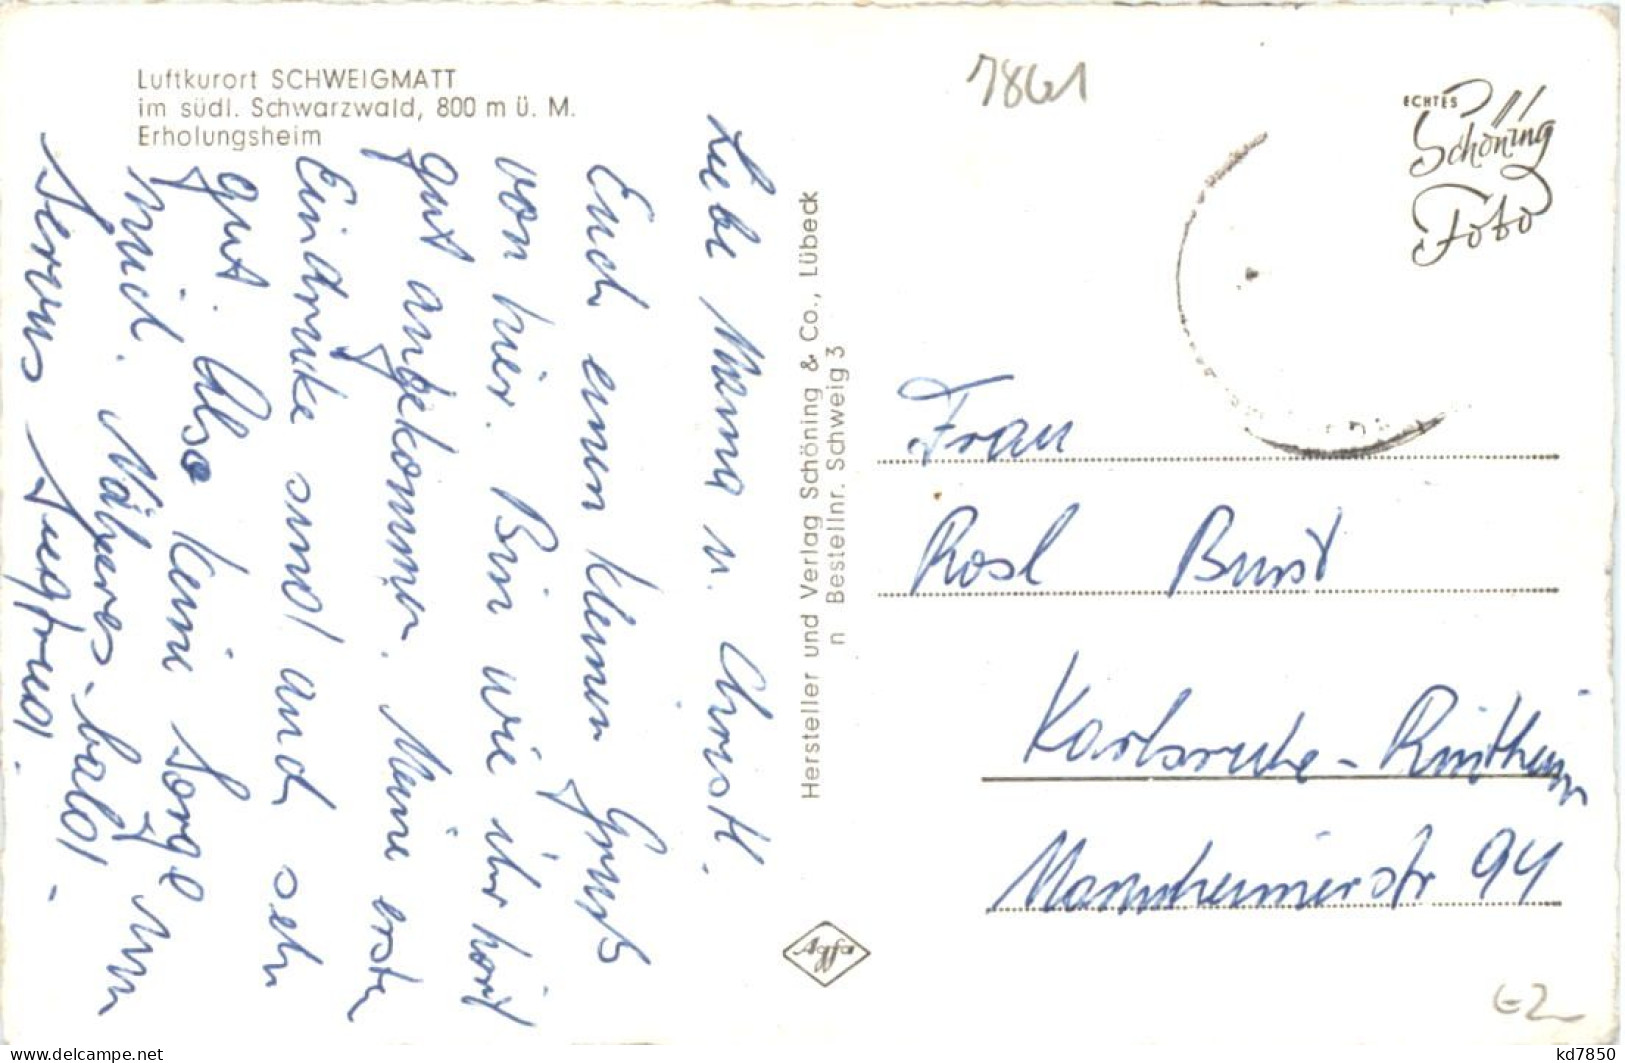 Luftkurort SCHWEIGMATT
im südl. Schwarzwald, 800 m ü. M.
Erholungsheim
Liebe Mama u. Christl.
Euch einen kleinen Gruß
von hier. Bin wie ihr hört
gut angekommen. Meine ersten
Eindrücke sind auch sehr
gut. Also keine Sorge um
mich. Näheres bald -
Servus Siegfried.
Hersteller und Verlag Schöning & Co., Lübeck
n Bestellnr. Schweig 3
Agfa
7861
ECHTES
Schöning
Foto
Frau
Rosl Bust
Karlsruhe-Rintheim
Mannheimerstr 94
€2
kd7850